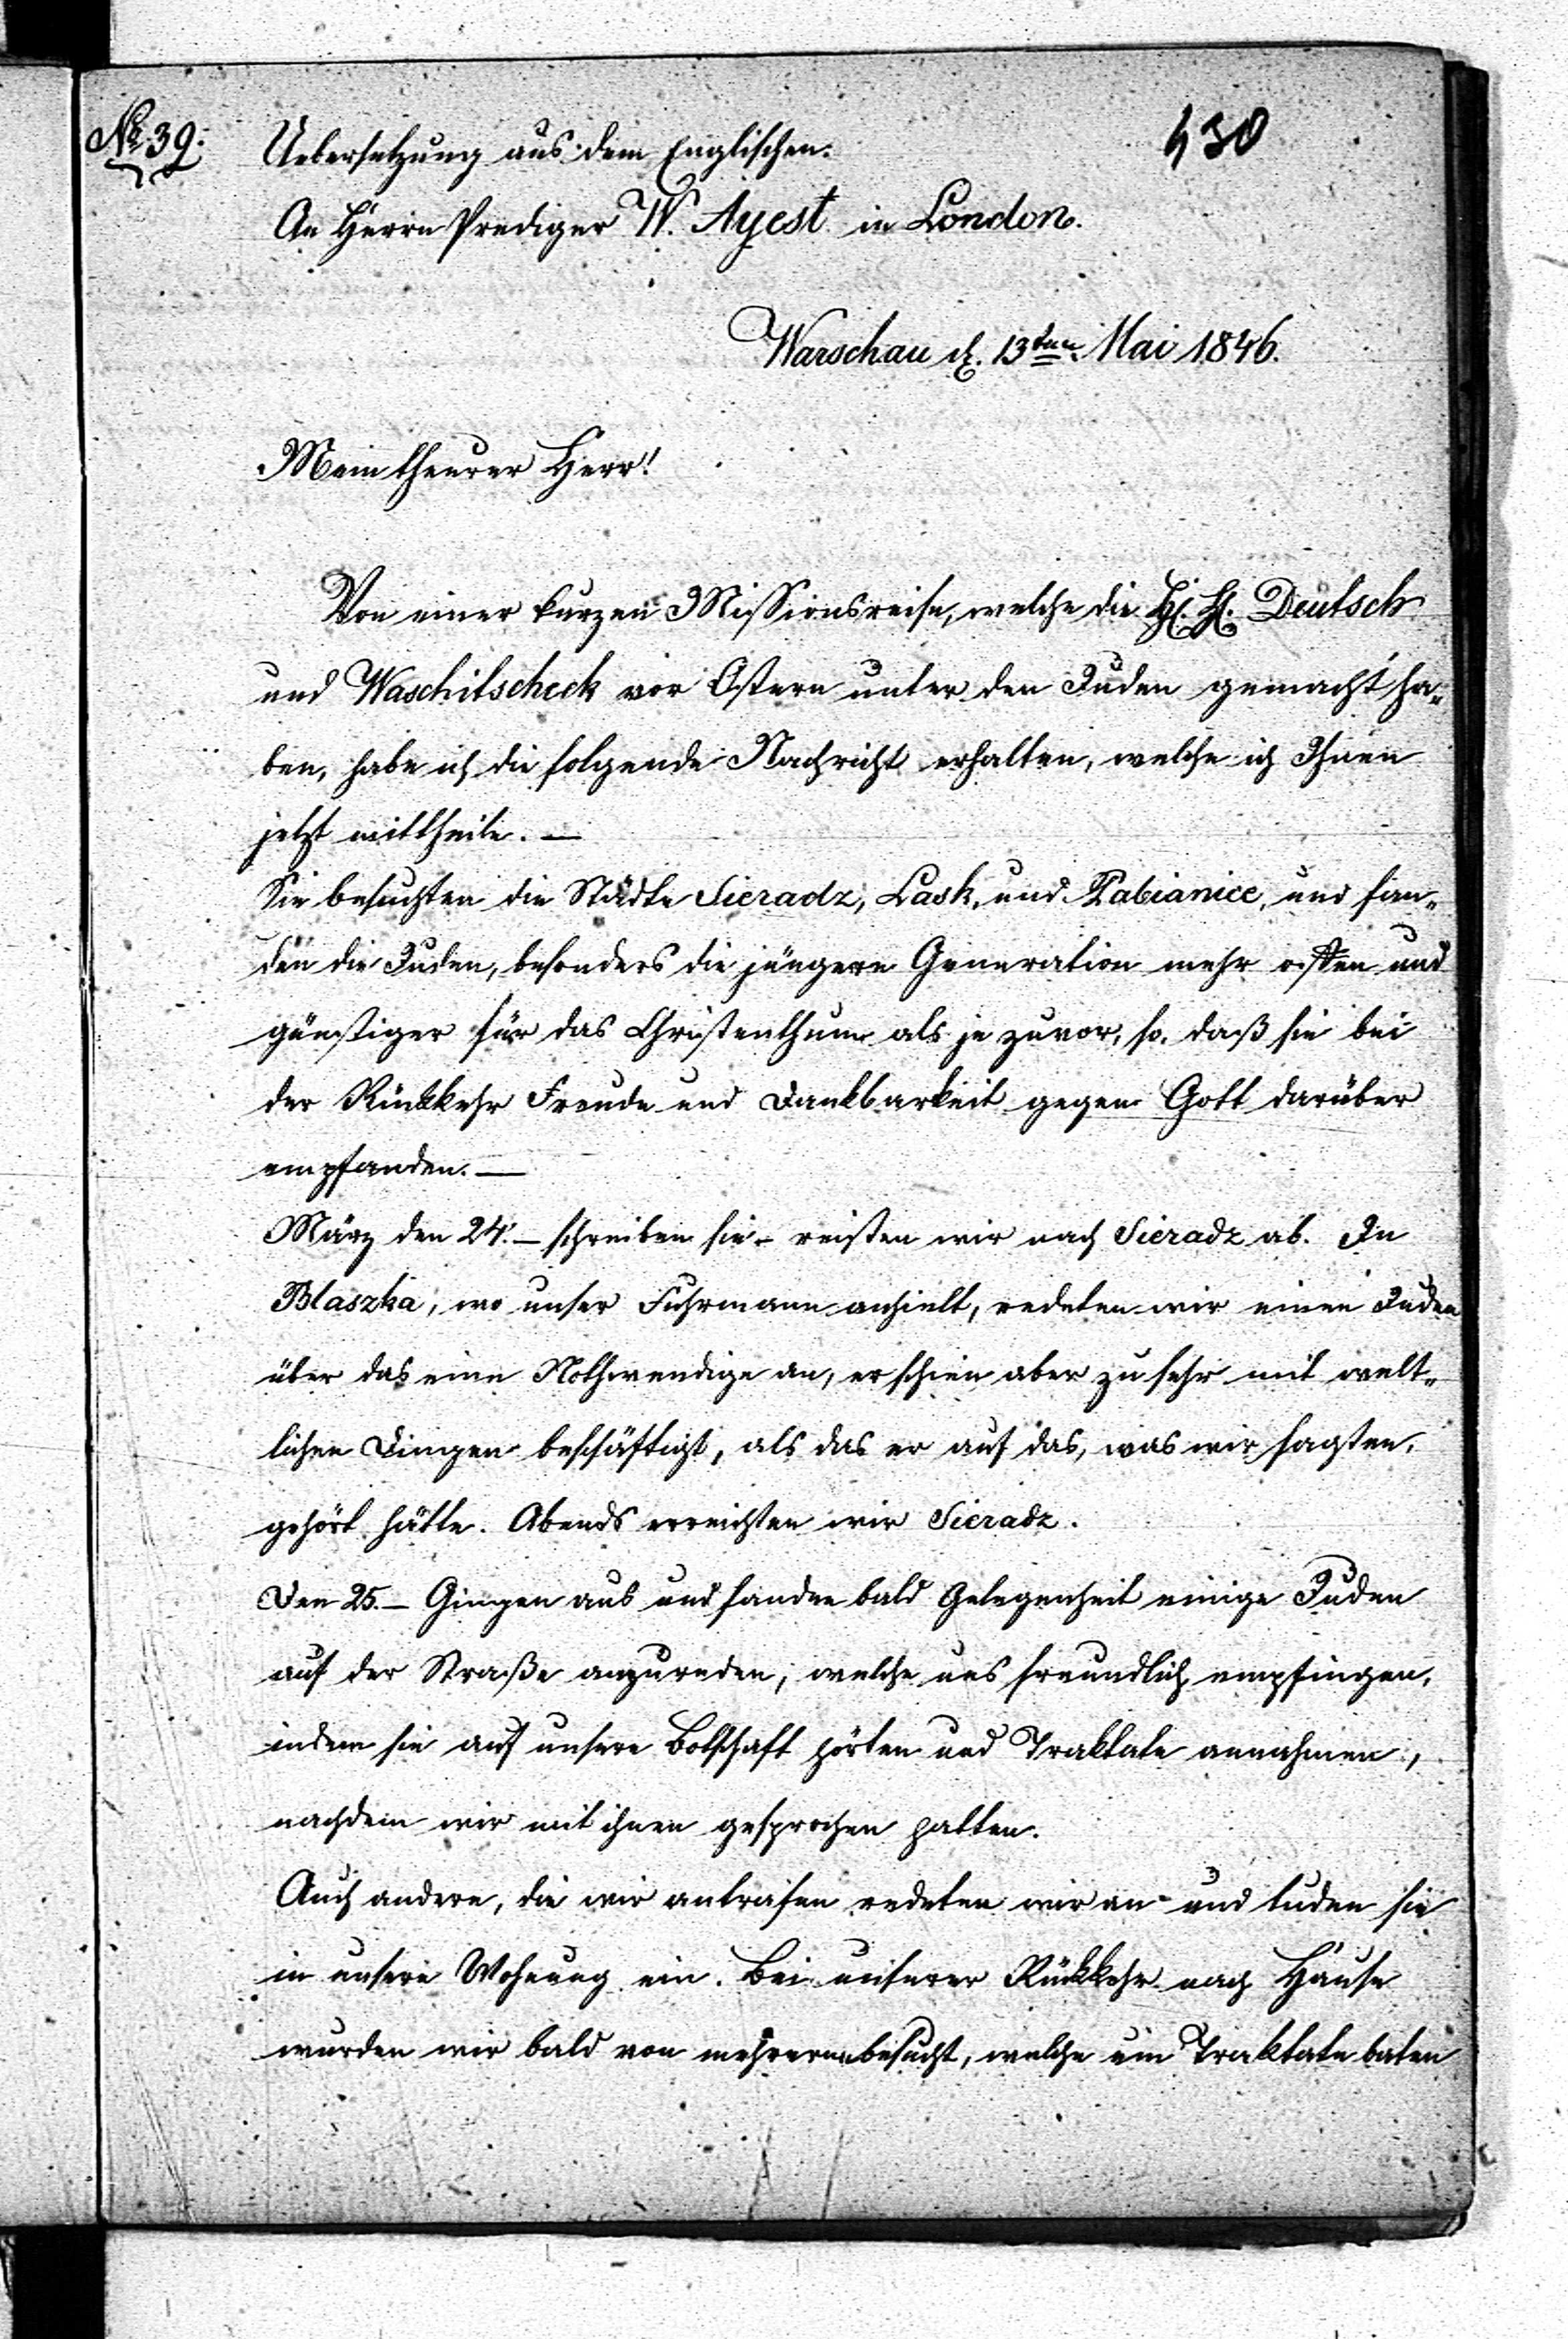 No. 39.
430
Uebersetzung aus dem Englischen.
An Herrn Prediger W. Ayest in London.
Warschau d. 13ten Mai 1846.
Mein theurer Herr!
Von einer kurzen Missionsreise, welche die H. H. Deutsch
und Waschitscheck vor Ostern unter den Juden gemacht ha-
ben, habe ich die folgende Nachricht erhalten, welche ich Ihnen
jetzt mittheile. —
Sie besuchten die Städte Sieradz, Lask, und Pabianice, und fan-
den die Juden, besonders die jüngere Generation mehr offen und
günstiger für das Christenthum als je zuvor, so, daß sie bei
der Rückkehr Freude und Dankbarkeit gegen Gott darüber
empfanden. —
März den 24. — schreiben sie - reisten wir nach Sieradz ab. In
Blaszka, wo unser Fuhrmann anhielt, redeten wir einen Juden
über das eine Nothwendige an, er schien aber zu sehr mit welt-
lichen Dingen beschäftigt, als das er auf das, was wir sagten,
gehört hätte. Abends erreichten wir Sieradz.
Den 25. — Gingen aus und fanden bald Gelegenheit einige Juden
auf der Straße anzureden, welche uns freundlich empfingen,
indem sie auf unsere Botschaft hörten und Traktate annahmen,
nachdem wir mit ihnen gesprochen hatten.
Auch andere, die wir antrafen redeten wir an und luden sie
in unsere Wohnung ein. Bei unserer Rückkehr nach Hause
wurden wir bald von mehreren besucht, welche um Traktate baten